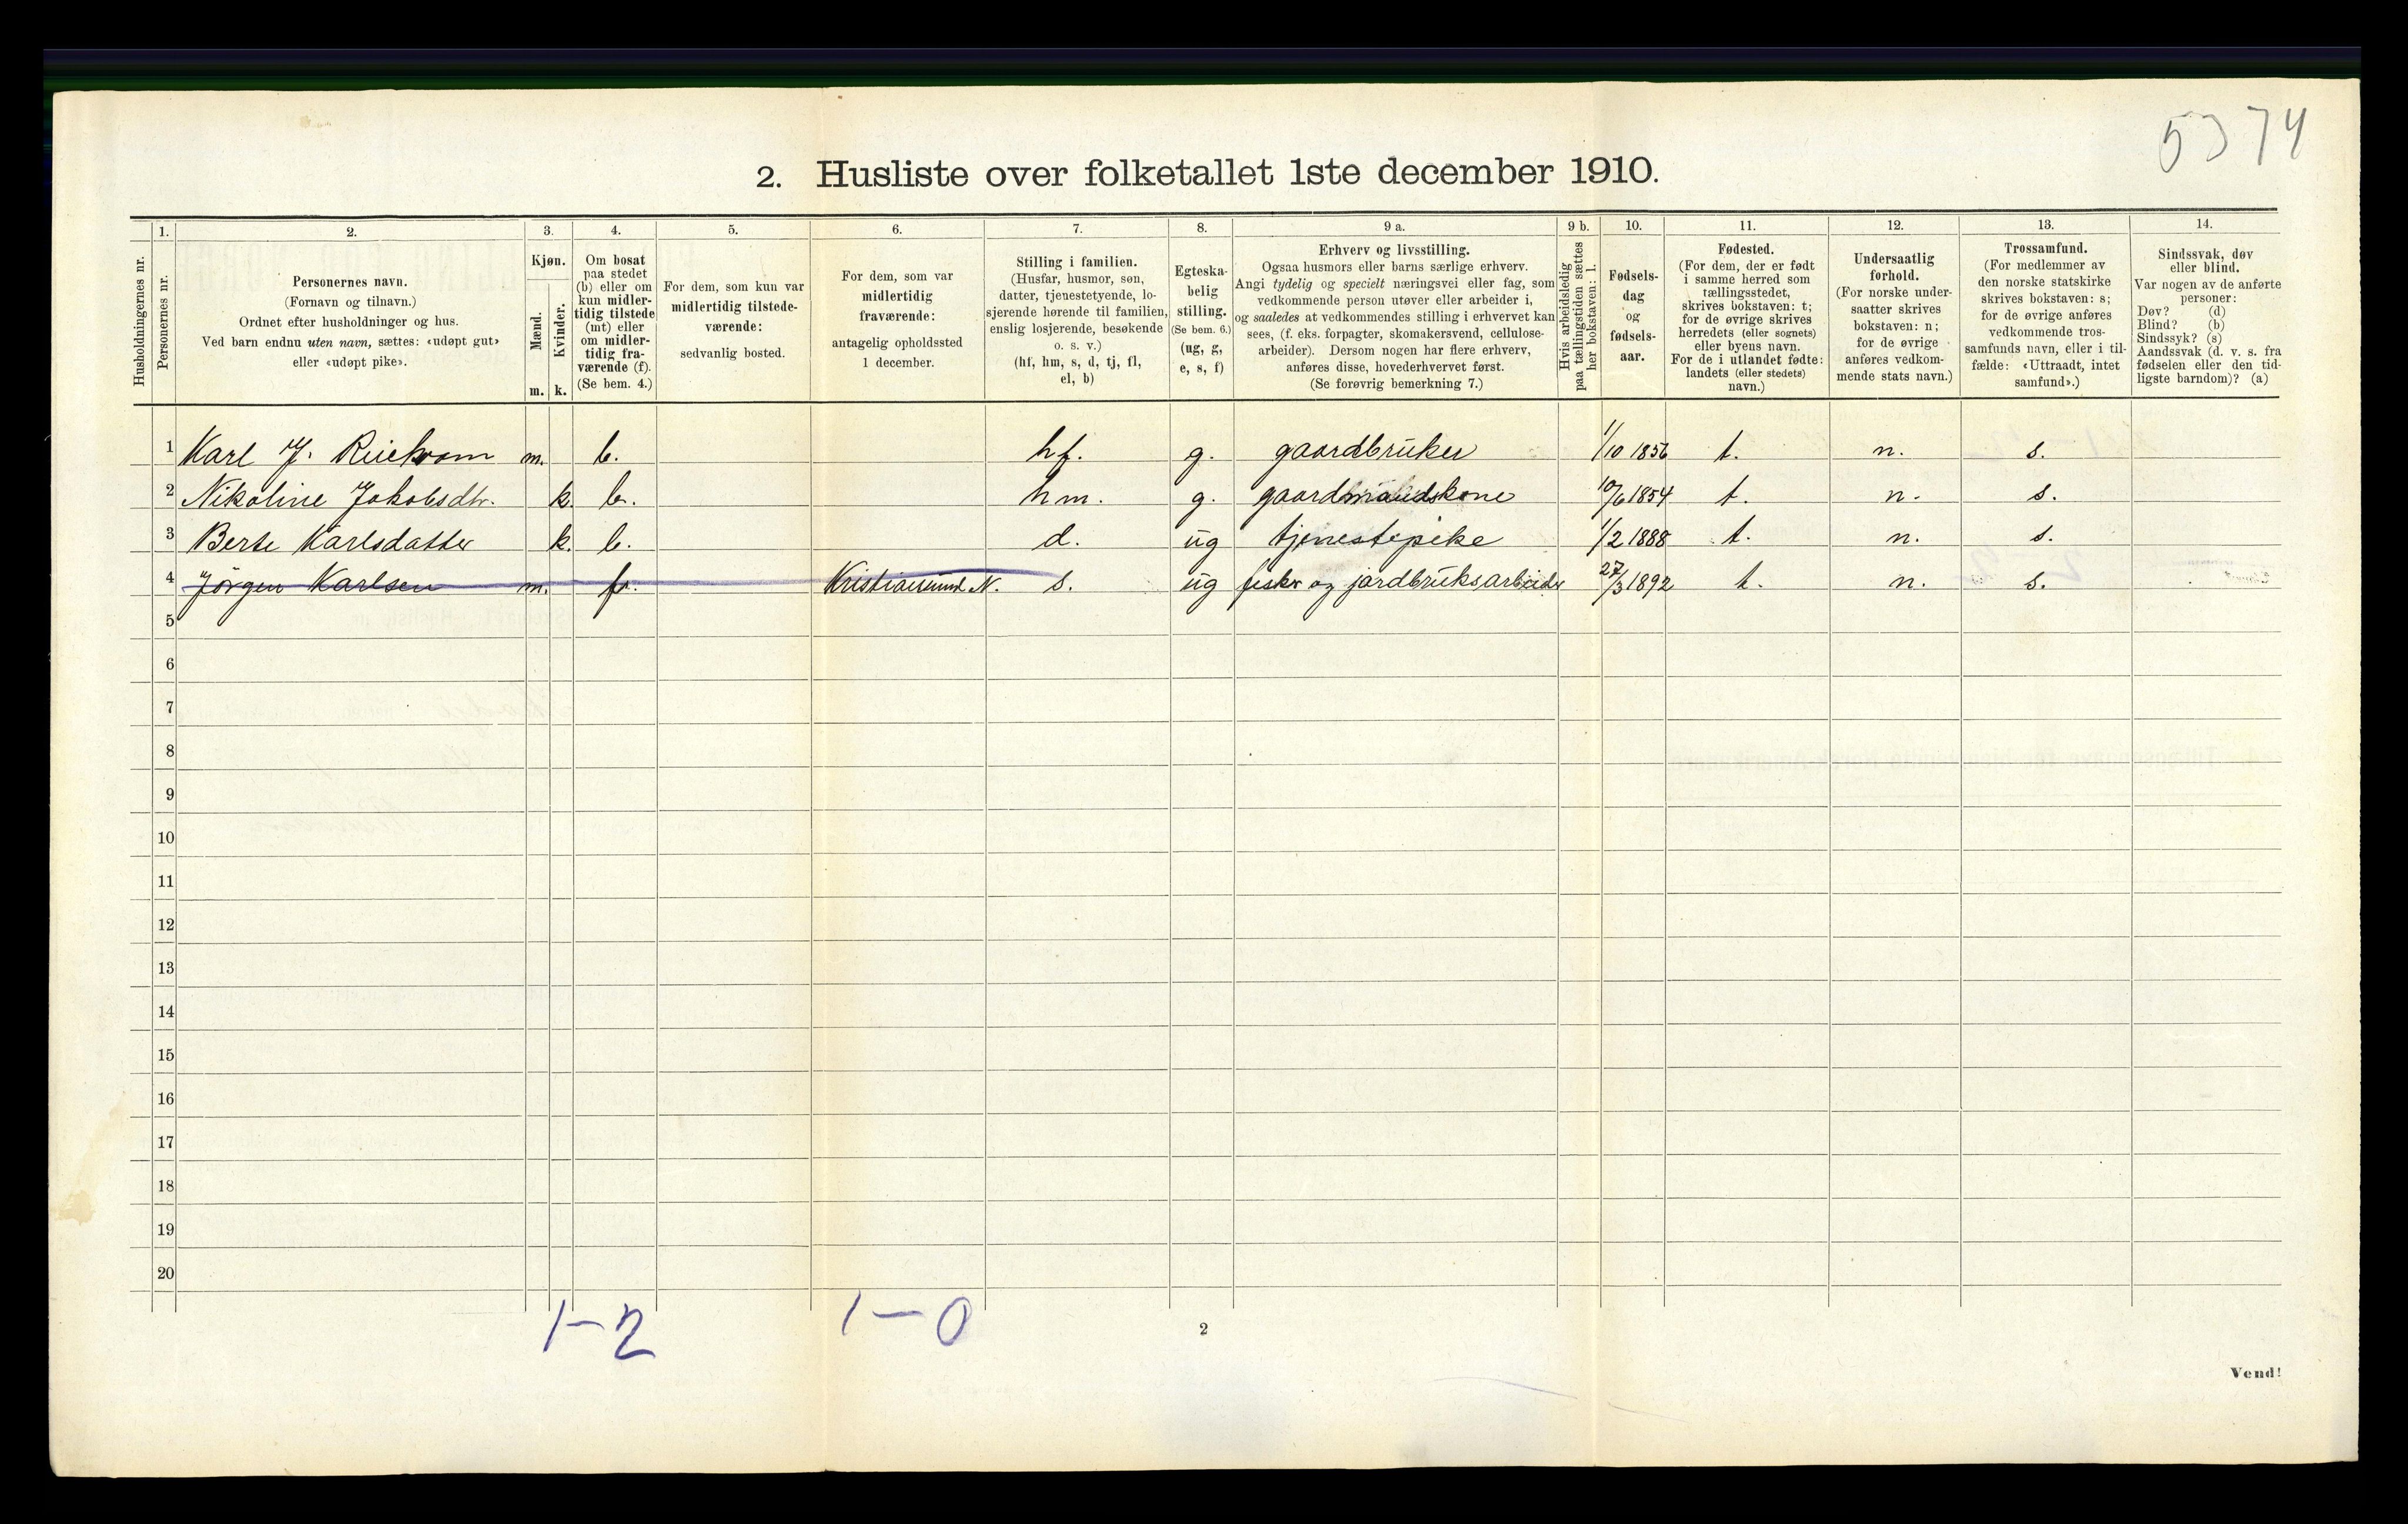 5374
2. Husliste over folketallet 1ste december 1910.
Husholdningernes nr.
1.
Personernes nr.
2.
Personernes navn.
(Fornavn og tilnavn.)
Ordnet efter husholdninger og hus.
Ved barn endnu uten navn, sættes: «udøpt gut»
eller «udøpt pike».
3.
Kjøn.
Mænd.
Kvinder.
m. k.
4.
Om bosat
paa stedet
(b) eller om
kun midler-
tidig tilstede
(mt) eller
om midler-
tidig fra-
værende (f).
(Se bem. 4.)
5.
For dem, som kun var
midlertidig tilstede-
værende:
sedvanlig bosted.
6.
For dem, som var
midlertidig
fraværende:
antagelig opholdssted
1 december.
7.
Stilling i familien.
(Husfar, husmor, søn,
datter, tjenestetyende, lo-
sjerende hørende til familien,
enslig losjerende, besøkende
o. s. v.)
(hf, hm, s, d, tj, fl,
el, b)
8.
Egteska-
belig
stilling.
(Se bem. 6.)
(ug, g,
e, s, f)
9 a.
Erhverv og livsstilling.
Ogsaa husmors eller barns særlige erhverv.
Angi tydelig og specielt næringsvei eller fag, som
vedkommende person utøver eller arbeider i,
og saaledes at vedkommendes stilling i erhvervet kan
sees, (f. eks. forpagter, skomakersvend, cellulose-
arbeider). Dersom nogen har flere erhverv,
anføres disse, hovederhvervet først.
(Se forøvrig bemerkning 7.)
9 b.
Hvis arbeidsledig
paa tællingstiden sættes
her bokstaven: l.
10.
Fødsels-
dag
og
fødsels-
aar.
11.
Fødested.
(For dem, der er født
i samme herred som
tællingsstedet,
skrives bokstaven: t;
for de øvrige skrives
herredets (eller sognets)
eller byens navn.
For de i utlandet fødte:
landets (eller stedets)
navn.)
12.
Undersaatlig
forhold.
(For norske under-
saatter skrives
bokstaven: n;
for de øvrige
anføres vedkom-
mende stats navn.)
13.
Trossamfund.
(For medlemmer av
den norske statskirke
skrives bokstaven: s;
for de øvrige anføres
vedkommende tros-
samfunds navn, eller i til-
fælde: «Uttraadt, intet
samfund».)
14.
Sindssvak, døv
eller blind.
Var nogen av de anførte
personer:
Døv? (d)
Blind? (b)
Sindssyk? (s)
Aandssvak (d. v. s. fra
fødselen eller den tid-
ligste barndom)? (a)
1 Karl J. m. b. hf. g. gaardbruker 1/10 1856 t. n. s.
2 Nikoline Jakobsdtr. k. b. hm. g. gaardmandskone 10/6 1854 t. n. s.
3 Berte Karlsdatter k. b. d. ug tjenestepike 1/2 1888 t. n. s.
4 Jörgen Karlsen m. f. Kristiansund N. s. ug fisker og jordbruksarbeider 27/3 1892 t. n. s.
5
6
7
8
9
10
11
12
13
14
15
16
17
18
19
20
1-2 1-0
2
Vend!